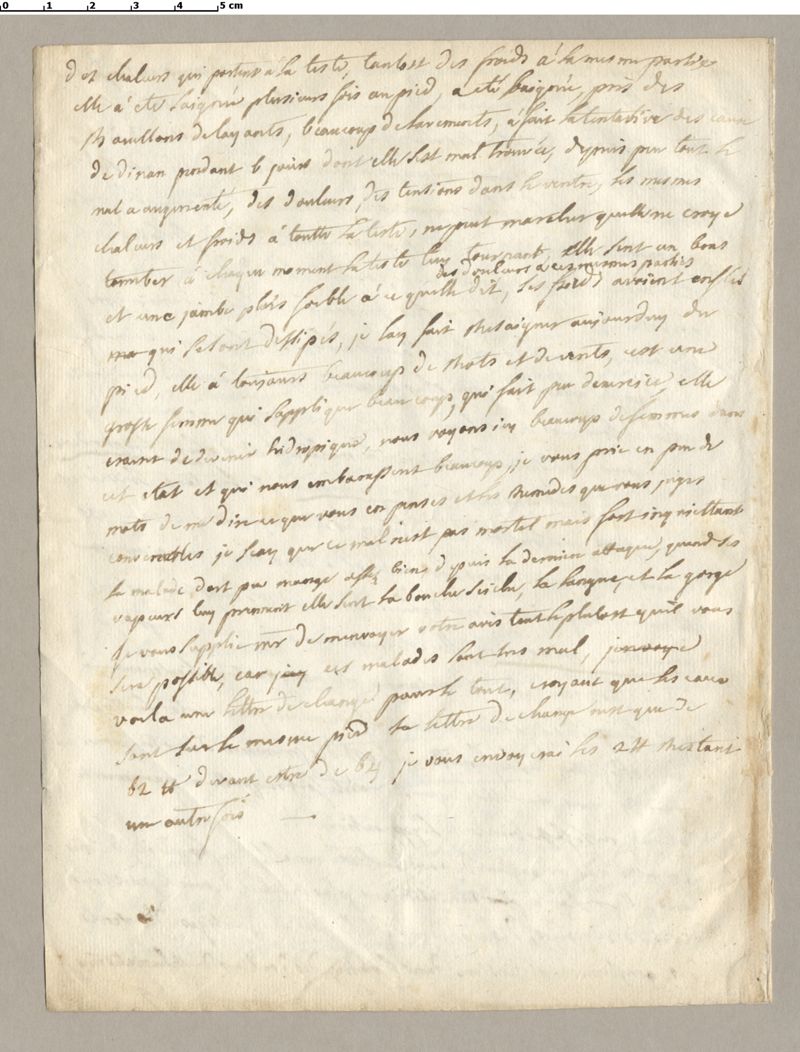 0 1 2 3 4 5 cm
des chaleurs qui portent a la teste, tantost des froids a la mesme partie
elle a eté saignée plusieurs fois au pied, a eté baignée, pris des
bouillons delayants, beaucoup de lavements, a fait la tentative des eaux
de dinan pendant 6 jours dont elle s'est mal trouvée, depuis peu tout le
mal a augmenté, des douleurs, des tensions dans le ventre, les mesmes
chaleurs et froids a toutte la teste, ne peut marcher quelle ne croye
tomber a chaque moment la teste luy tournant elle sent un bras
des douleurs a ces mesmes parties
et une jambe plus foible a ce quelle dit, ses pieds avoient enflés
qui se sont dessipés, je lay fait resaigner aujourduy du
pied, elle a toujours beaucoup de rhots et de vents, cest une
grosse femme qui sapplique beaucoup, qui fait peu dexercice, elle
craint de devenir hidropique, nous voyons icy beaucoup de femmes dans
cet etat et qui nous embarassent beaucoup, je vous prie en peu de
mots de me dire ce que vous en penses et les remedes que vous juges
convenables je scay que ce mal nest pas mortel mais fort inquiettant
la malade dort peu mange assé bien depuis la derniere attaque, quand ses
vapeurs luy prennent elle sent la bouche seiche, la langue, et la gorge
je vous supplie mr de menvoyer votre avis tout le plutost quil vous
sera possible, car ces malades sont tres mal, jenvoye
voila une lettre de change pour le tout, croyant que les eaux
sont sur le mesme pied la lettre de change nest que de
62 ₶ devant estre de 64 je vous envoyerai les 2 ₶ restant
un autre fois —